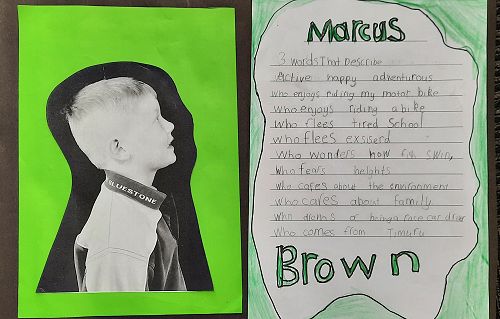 BLUESTONE
Marcus
3 words That Describe
Active happy adventurous
who enjoys riding my motor bike
who enjoys riding a bike
who flees tired School
who flees exsiserd
who wonders how fish swim,
who fears heights
who cares about the environment
who cares about family
who dreams of being a race car driver
who comes from Timuru
Brown